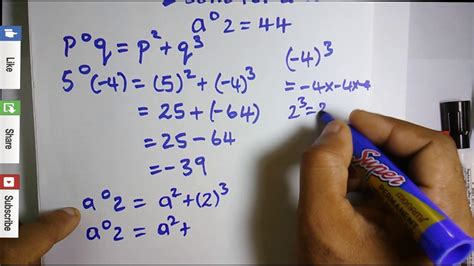 a°2 = 44
p°q = p² + q³
5°(-4) = (5)² + (-4)³
= 25 + (-64)
= 25 - 64
= -39
a°2 = a² + (2)³
a°2 = a² +
(-4)³
= -4x-4x-4
2³ = 2
Like
Share
Subscribe
Super